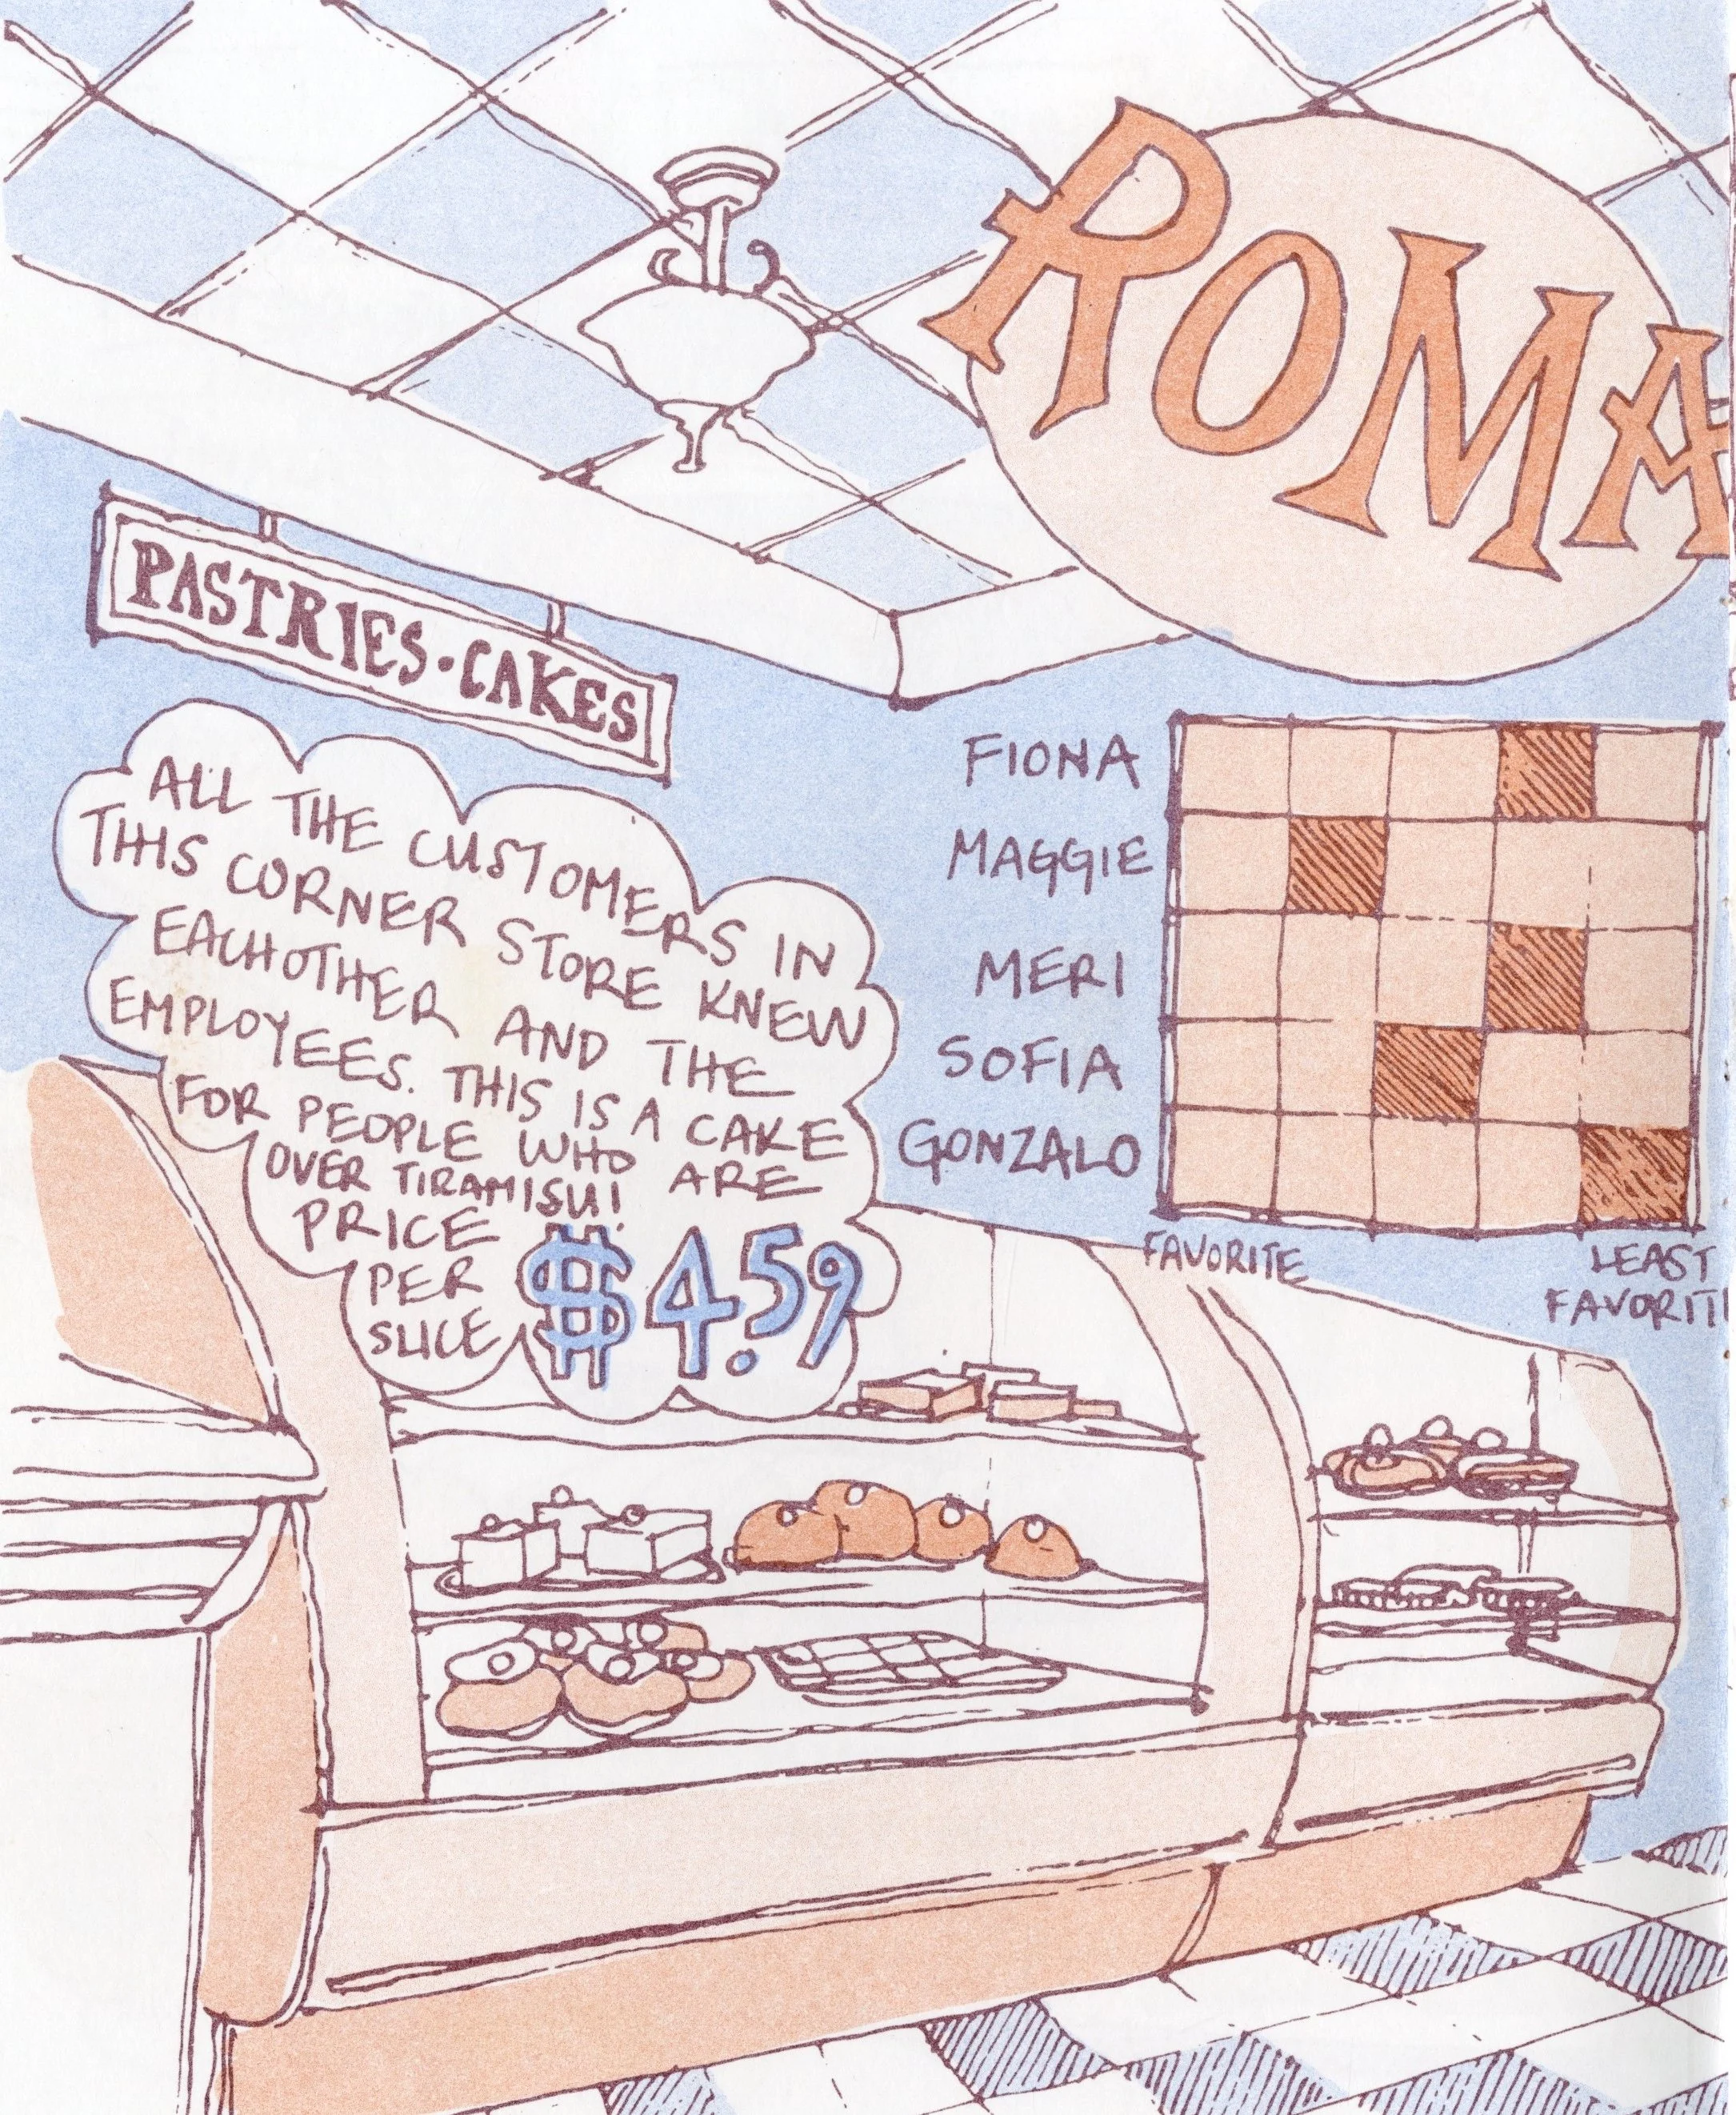 ROMA
PASTRIES · CAKES
ALL THE CUSTOMERS IN
THIS CORNER STORE KNEW
EACHOTHER AND THE
EMPLOYEES. THIS IS A CAKE
FOR PEOPLE WHO ARE
OVER TIRAMISU!
PRICE
PER
SLICE
$4.59
FIONA
MAGGIE
MERI
SOFIA
GONZALO
FAVORITE
LEAST
FAVORIT